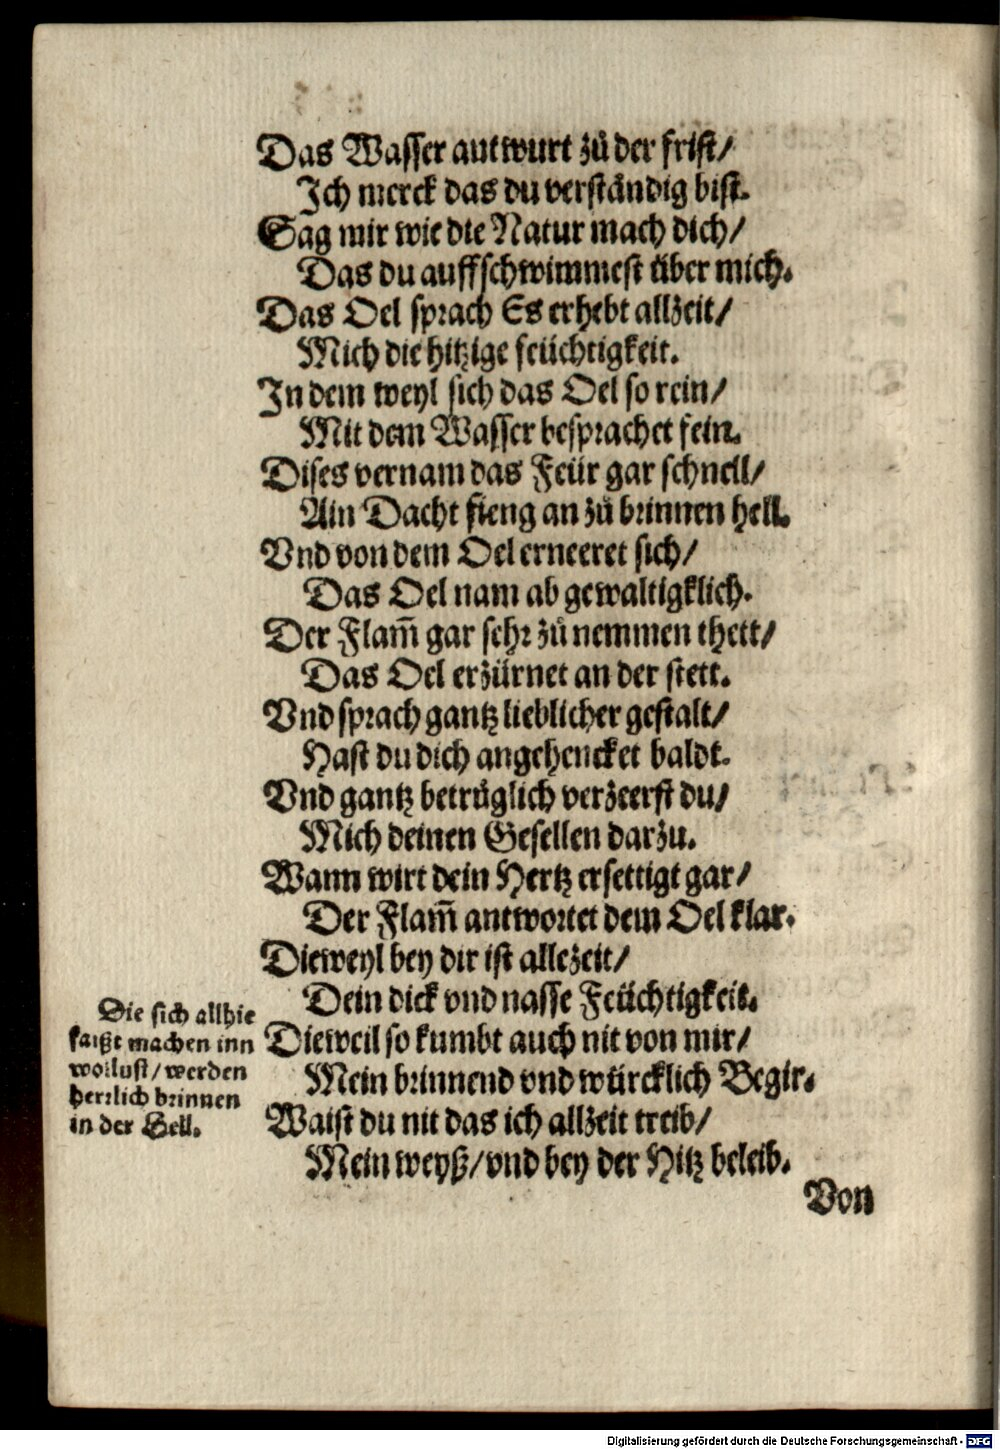 Das Wasser antwurt zů der frist/
Ich merck das du verständig bist.
Sag mir wie die Natur mach dich/
Das du auffschwimmest über mich.
Das Oel sprach Es erhebt allzeit/
Mich die hitzige feüchtigkeit.
In dem weyl sich das Oel so rein/
Mit dem Wasser besprachet fein.
Dises vernam das Feür gar schnell/
Ain Dacht fieng an zů brinnen hell.
Vnd von dem Oel erneeret sich/
Das Oel nam ab gewaltigklich.
Der Flam̃ gar sehr zů nemmen thett/
Das Oel erzürnet an der stett.
Vnd sprach gantz lieblicher gestalt/
Hast du dich angehencket baldt.
Vnd gantz betrüglich verzeerst du/
Mich deinen Gesellen darzu.
Wann wirt dein Hertz ersettigt gar/
Der Flam̃ antwortet dem Oel klar.
Dieweyl bey dir ist allezeit/
Dein dick vnd nasse Feüchtigkeit.
Dieweil so kumbt auch nit von mir/
Mein brinnend vnd würcklich Begir.
Waist du nit das ich allzeit treib/
Mein weyß/vnd bey der Hitz beleib.
Die sich allhie
faißt machen inn
wollust/werden
herrlich brinnen
in der Hell.
Von
Digitalisierung gefördert durch die Deutsche Forschungsgemeinschaft - DFG